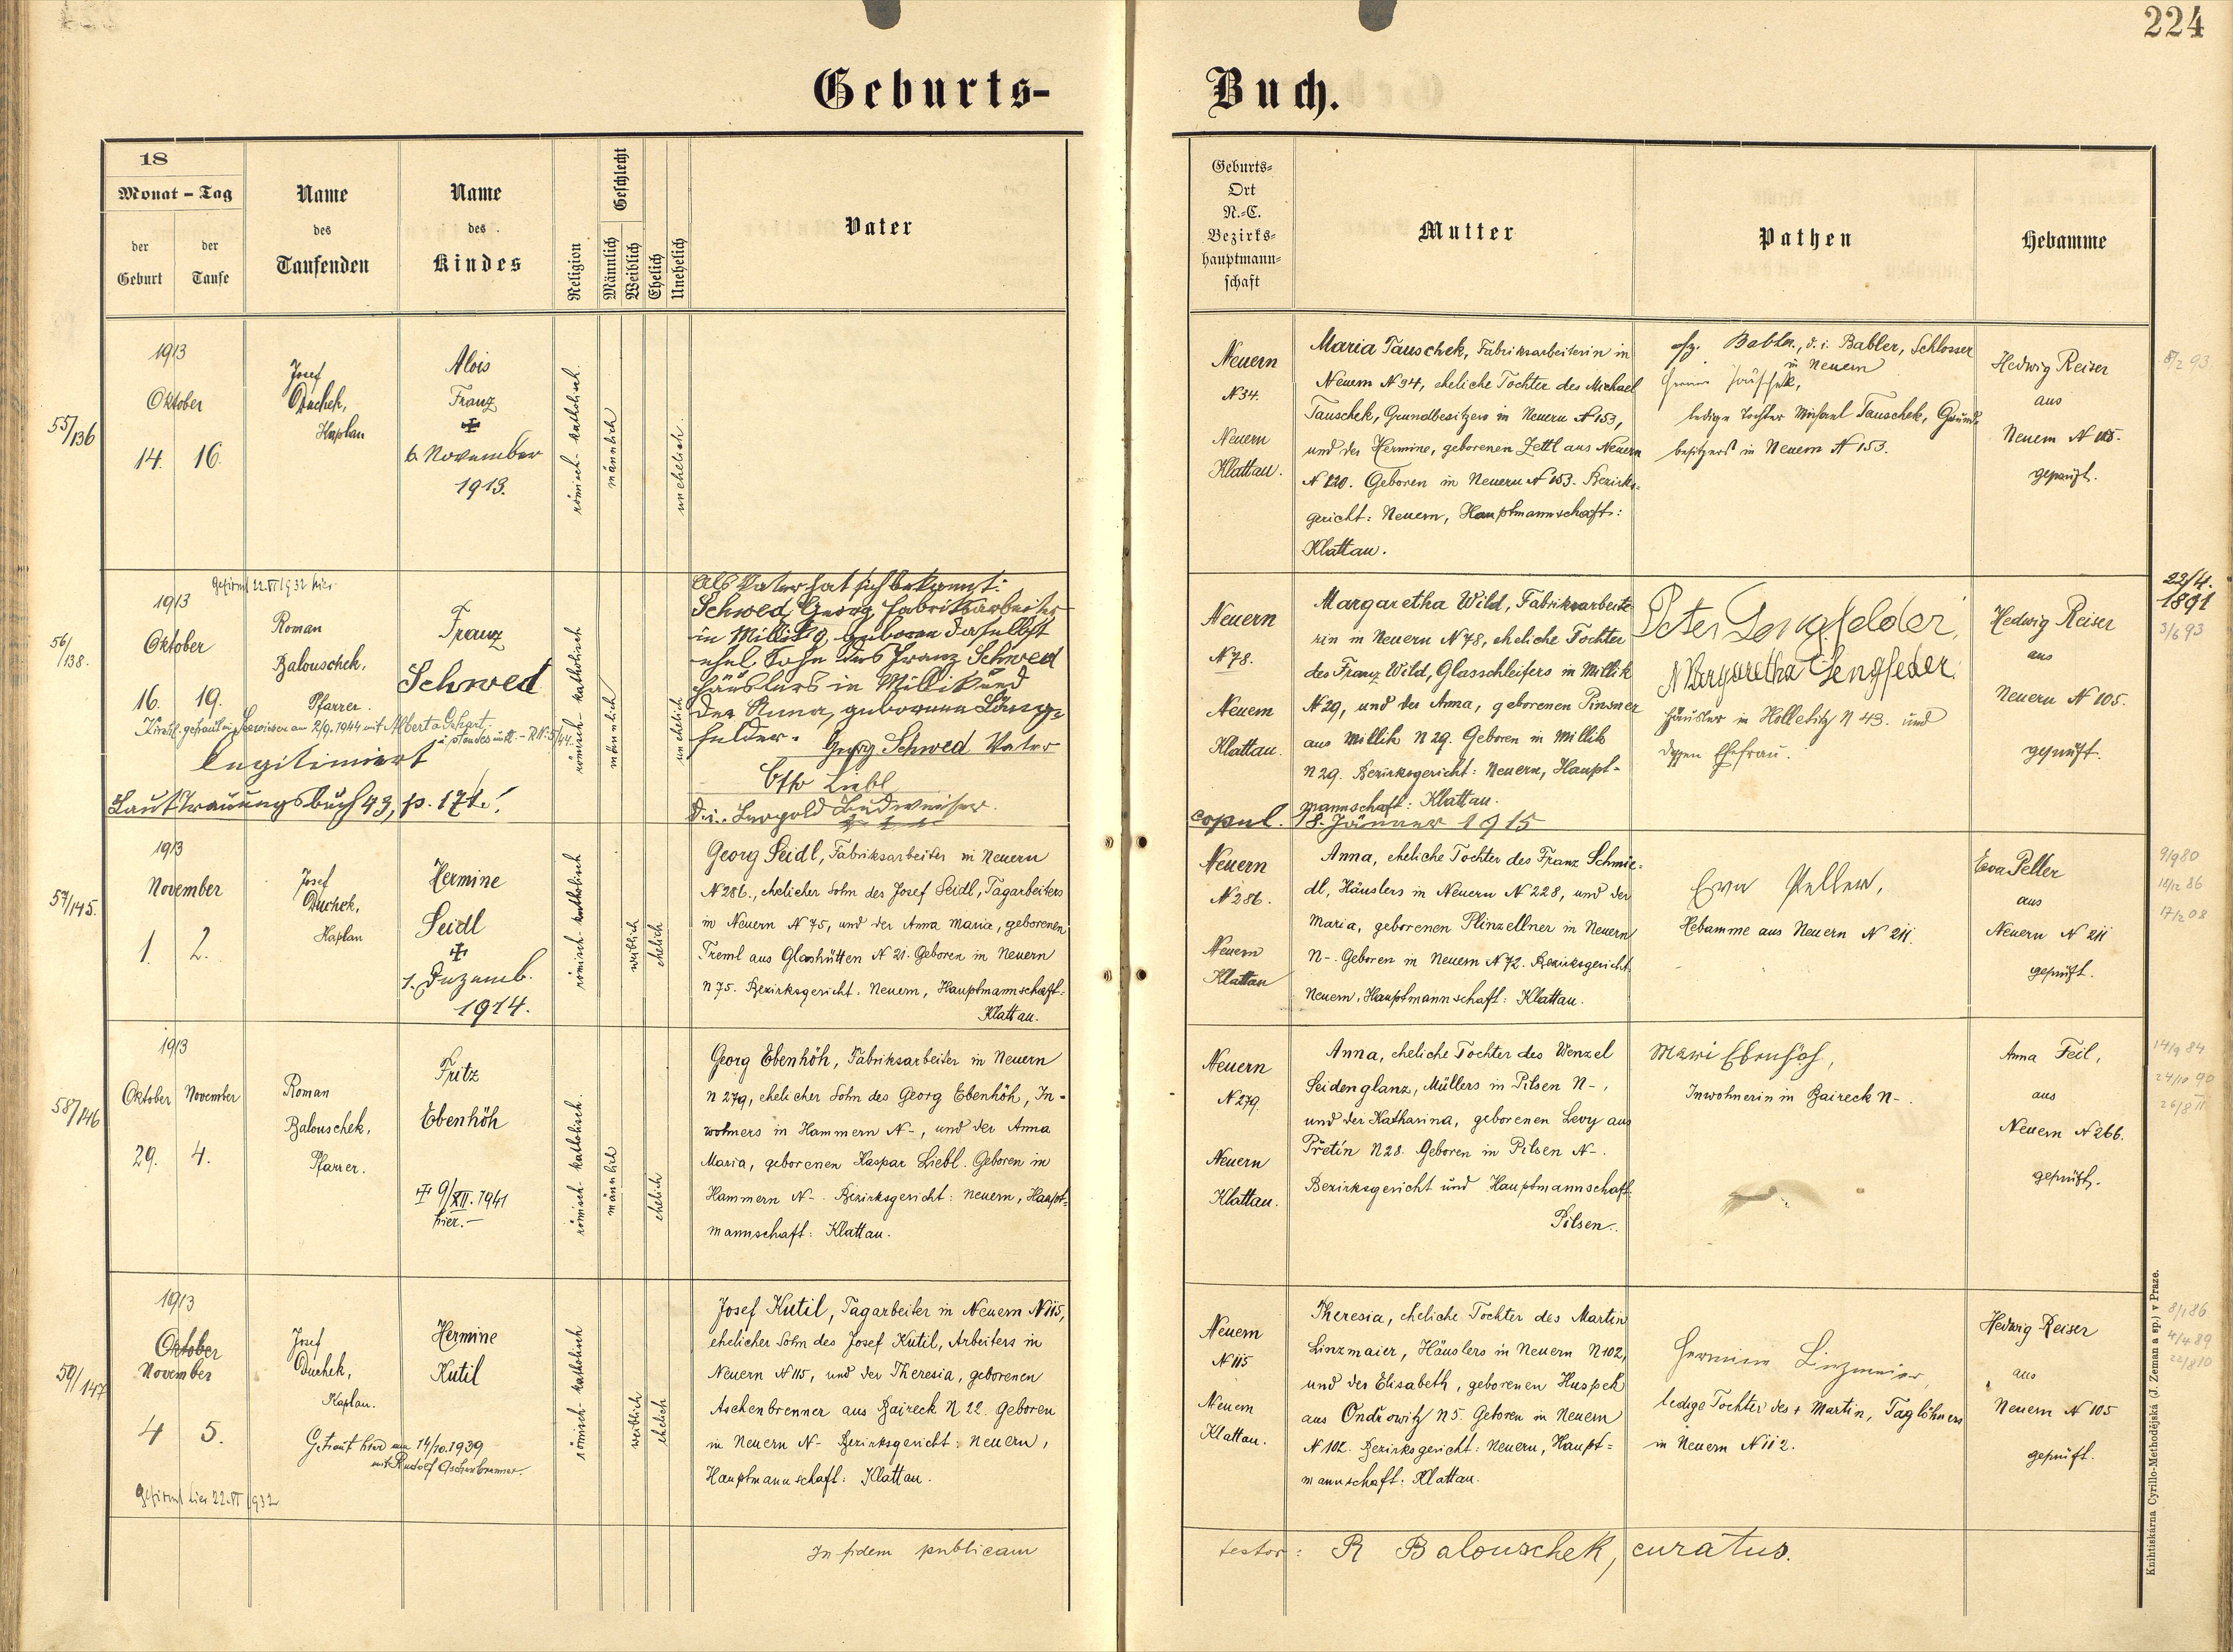 224
Geburts-
Buch.
18
Monat - Tag
der Geburt
der Taufe
Name
des
Taufenden
Name
des
Kindes
Religion
Geschlecht
Männlich
Weiblich
Ehelich
Unehelich
Vater
Geburts-
Ort
N.-C.
Bezirks-
hauptmann-
schaft
Mutter
Pathen
Hebamme
55/136
1913
Oktober
14. 16.
Josef
Duchek,
Kaplan
Alois
Franz
✠
6. November
1913.
römisch-katholisch.
männlich
unehelich
Neuern
N 34.
Neuern
Klattau.
Maria Tauschek, Fabriksarbeiterin in
Neuern N 34, eheliche Tochter des Michael
Tauschek, Grundbesitzers in Neuern N 153,
und der Hermine, geborenen Zettl aus Neuern
N 120. Geboren in Neuern N 153. Bezirks-
gericht: Neuern, Hauptmannschaft:
Klattau.
Babler, d. i. Babler, Schlosser
in Neuern
ledige Tochter Michael Tauschek, Grund-
besitzers in Neuern N 153.
Hedwig Reiser
aus
Neuern N 105.
geprüft.
8/2 93
56/138.
Gefirmt 22.VI 1932 hier
1913
Oktober
16. 19.
Roman
Balouschek,
Pfarrer.
Franz
Schwed
Kirchl. getraut in Seewiesen am 2/9. 1944 mit
legitimiert
Laut Trauungsbuch 43, p. 174!
römisch-katholisch
männlich
unehelich
Als Vater hat sich bekannt:
Schwed Georg, Fabriksarbeiter
in Millik 9, geboren daselbst
ehel. Sohn des Franz Schwed
Häuslers in Millik und
der Anna, geborenen Läng-
felder. Georg Schwed Vater
Otto Liebl
d. i. Leopold Budweiser.
Neuern
N 78.
Neuern
Klattau.
Margaretha Wild, Fabriksarbeite-
rin in Neuern N 78, eheliche Tochter
des Franz Wild, Glasschleifers in Millik
N 29, und der Anna, geborenen Pinsner
aus Millik N 29. Geboren in Millik
N 29. Bezirksgericht: Neuern, Haupt-
mannschaft: Klattau.
copul. 18. Jänner 1915
Peter Lengfelder,
Margaretha Lengfelder
Häusler in Holletitz N 43. und
dessen Ehefrau.
Hedwig Reiser
aus
Neuern N 105.
geprüft.
22/4.
1891
3/6 93
57/145.
1913
November
1. 2.
Josef
Duchek,
Kaplan
Hermine
Seidl
✠
1. Dezemb.
1914.
römisch-katholisch
weiblich
ehelich
Georg Seidl, Fabriksarbeiter in Neuern
N 286., ehelicher Sohn des Josef Seidl, Tagarbeiters
in Neuern N 75, und der Anna Maria, geborenen
Treml aus Glashütten N 21. Geboren in Neuern
N 75. Bezirksgericht. Neuern, Hauptmannschaft:
Klattau.
Neuern
N 286.
Neuern
Klattau
Anna, eheliche Tochter des Franz Schmie-
dl, Häuslers in Neuern N 228, und der
Maria, geborenen Plinzellner in Neuern
N -. Geboren in Neuern N 72. Bezirksgericht
Neuern, Hauptmannschaft: Klattau.
Ewa Peller,
Hebamme aus Neuern N 211.
Eva Peller
aus
Neuern N 211
geprüft.
9/9 80
18/12 86
17/2 08
58/146
1913
Oktober November
29. 4.
Roman
Balouschek,
Pfarrer.
Fritz
Ebenhöh
✠ 9/XII. 1941
hier. —
römisch-katholisch.
männlich
ehelich
Georg Ebenhöh, Fabriksarbeiter in Neuern
N 279, ehelicher Sohn des Georg Ebenhöh, In-
wohners in Hammern N -, und der Anna
Maria, geborenen Kaspar Liebl. Geboren in
Hammern N -. Bezirksgericht: Neuern, Haupt-
mannschaft: Klattau.
Neuern
N 279.
Neuern
Klattau.
Anna, eheliche Tochter des Wenzel
Seidenglanz, Müllers in Pilsen N -,
und der Katharina, geborenen Levy aus
Přetín N 28. Geboren in Pilsen N -.
Bezirksgericht und Hauptmannschaft
Pilsen.
Mari Ebenhöh,
Inwohnerin in Baireck N -.
Anna Feil,
aus
Neuern N 266.
geprüft.
14/9 84
24/10 90
26/8 11
59/147
1913
Oktober
November
4 5.
Josef
Duchek,
Kaplan.
Hermine
Kutil
Getraut hier am 14/10. 1939
mit Rudolf Aschenbrenner.
Gefirmt hier 22.VI 1932
römisch-katholisch
weiblich
ehelich
Josef Kutil, Tagarbeiter in Neuern N 115,
ehelicher Sohn des Josef Kutil, Arbeiters in
Neuern N 115, und der Theresia, geborenen
Aschenbrenner aus Baireck N 22. Geboren
in Neuern N - Bezirksgericht: Neuern,
Hauptmannschaft: Klattau.
Neuern
N 115
Neuern
Klattau.
Theresia, eheliche Tochter des Martin
Linzmaier, Häuslers in Neuern N 102,
und der Elisabeth, geborenen Huspek
aus Ondřowitz N 5. Geboren in Neuern
N 102. Bezirksgericht: Neuern, Haupt-
mannschaft: Klattau.
Hermine Linzmeier,
ledige Tochter des + Martin, Taglöhners
in Neuern N 112.
Hedwig Reiser
aus
Neuern N 105
geprüft.
8/1 86
4/4 89
22/8 10
In fidem publicam
testor: R Balouschek, curatus.
Knihtiskárna Cyrillo-Methodějská (J. Zeman a sp.) v Praze.